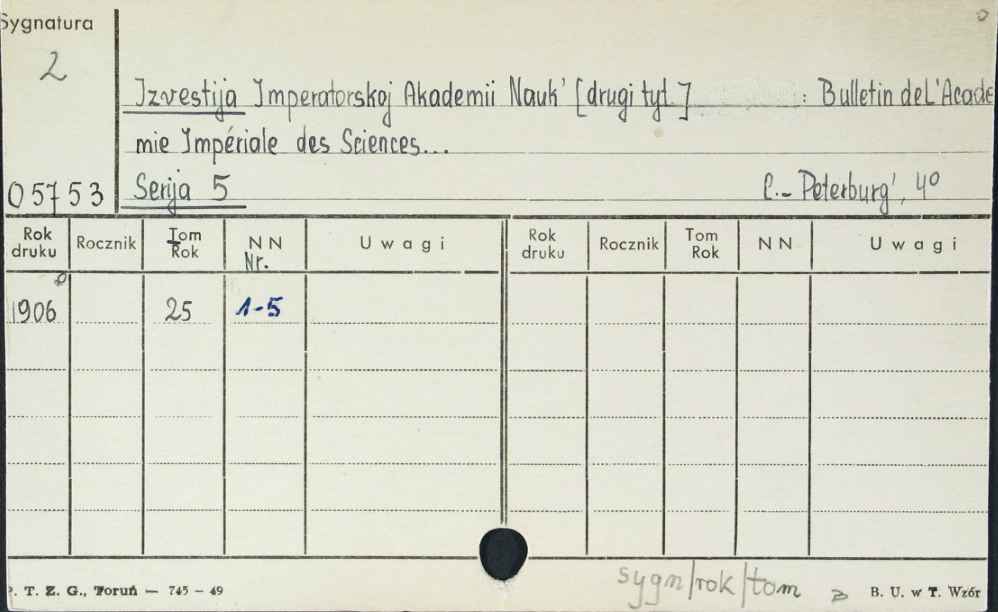 Sygnatura
2
Izvestija Imperatorskoj Akademii Nauk' [drugi tyt.] : Bulletin de L'Acade
mie Impériale des Sciences...
05753 Serija 5 C.- Peterburg', 4º
Rok druku Rocznik Tom Rok NN Nr. Uwagi Rok druku Rocznik Tom Rok NN Uwagi
1906 25 1-5
sygn/rok/tom
P. T. Z. G., Toruń — 745 — 49 B. U. w T. Wzór